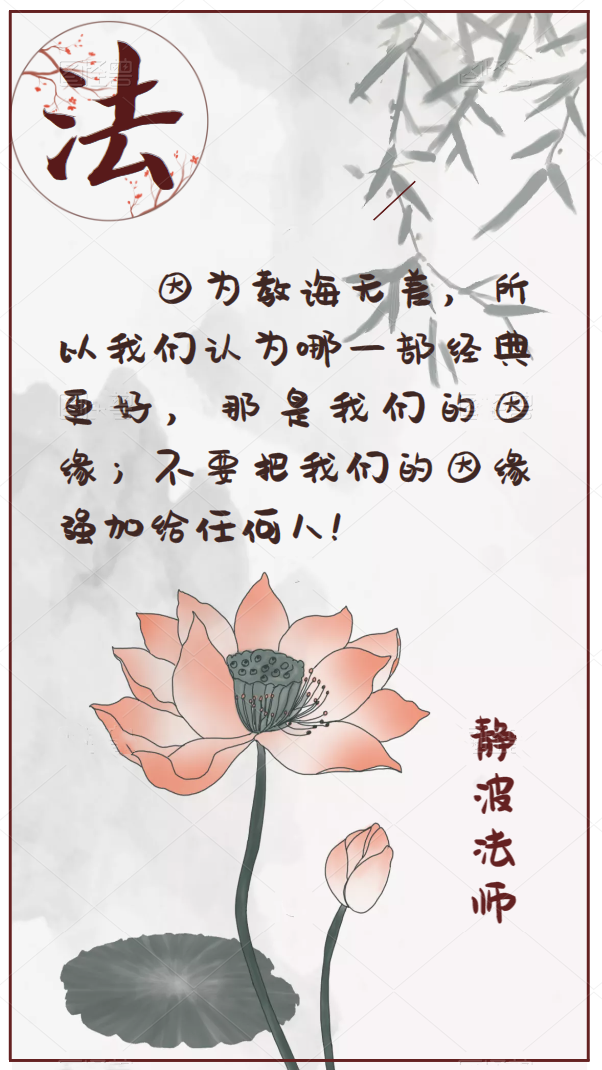 法
因为教诲无差，所
以我们认为哪一部经典
更好，那是我们的因
缘；不要把我们的因缘
强加给任何人！
静波法师